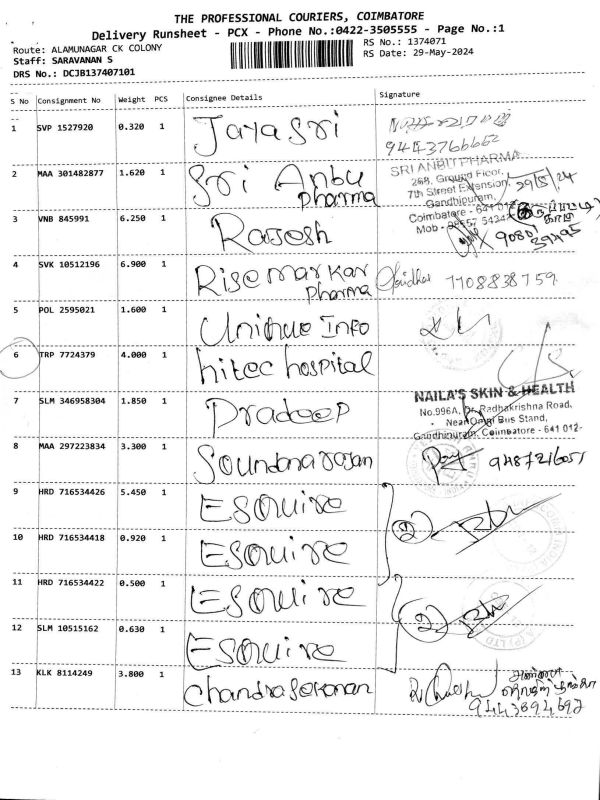 THE PROFESSIONAL COURIERS, COIMBATORE
Delivery Runsheet - PCX - Phone No.:0422-3505555 - Page No.:1
Route: ALAMUNAGAR CK COLONY
RS No.: 1374071
Staff: SARAVANAN S
RS Date: 29-May-2024
DRS No.: DCJB137407101
S No Consignment No Weight PCS Consignee Details Signature
1 SVP 1527920 0.320 1 Jayasri
9443766662
2 MAA 301482877 1.620 1 Sri Anbu pharma
SRI ANBU PHARMA
268, Ground Floor,
7th Street Extension,
Gandhipuram,
Coimbatore - 641 012
29/5/24
3 VNB 845991 6.250 1 Rajesh
90801
39495
4 SVK 10512196 6.900 1 Rise markar pharma
Sridhar 7708838759
5 POL 2595021 1.600 1 Unique Info
6 TRP 7724379 4.000 1 hitec hospital
7 SLM 346958304 1.850 1 Pradeep
NAILA'S SKIN & HEALTH
No.996A, Dr. Radhakrishna Road,
Near Omni Bus Stand,
Gandhipuram, Coimbatore - 641 012-
8 MAA 297223834 3.300 1 Soundnarajan
9487216051
9 HRD 716534426 5.450 1 Esquire
10 HRD 716534418 0.920 1 Esquire
2
11 HRD 716534422 0.500 1 Esquire
12 SLM 10515162 0.630 1 Esquire
2
13 KLK 8114249 3.800 1 Chandrasekanan
9443894692